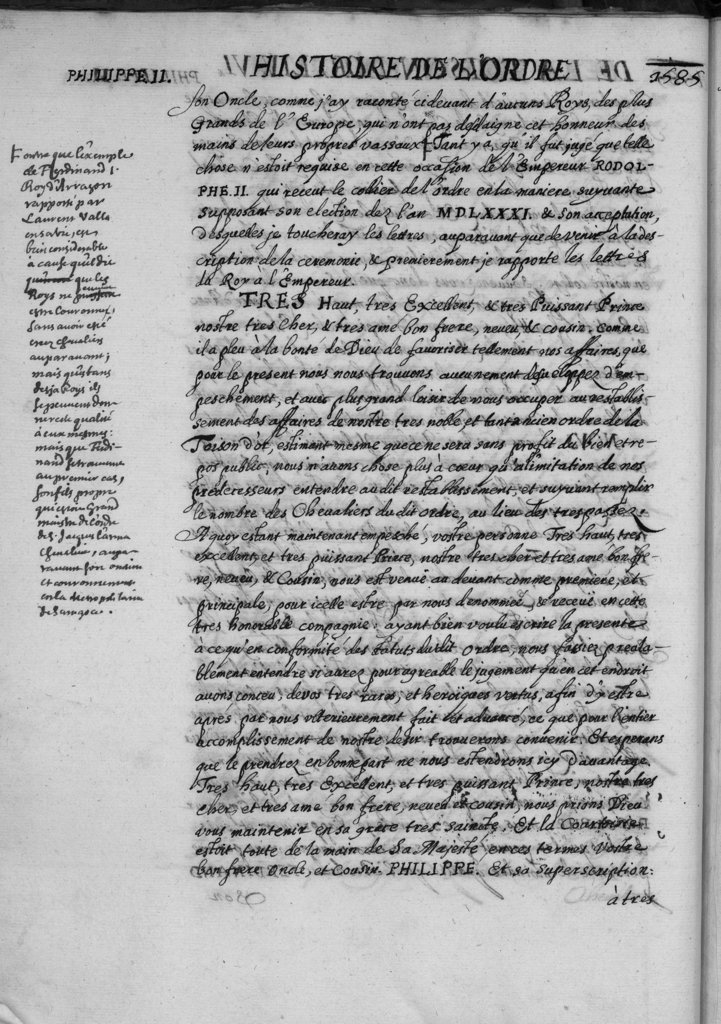 PHILIPPE II. HISTOIRE DE L'ORDRE 1585
son Oncle, comme j'ay raconté cidevant d'aucuns Roys, des plus
Grands de l'Europe, qui n'ont pas dédaigne cet honneur des
mains de leurs propres vassaux. Tant y a, qu'il fut jugé que telle
chose n'estoit requise en cette occasion de l'Empereur RODOL-
PHE. II. qui receut le collier de l'ordre en la maniere suyvante
supposant son election dez l'an MDLXXXI. & son acceptation,
desquelles je toucheray les lettres, auparavant que de venir à la des-
cription de la ceremonie, & premierement je rapporte les lettres
du Roy à l'Empereur.
TRES Haut, tres Excellent, & tres Puissant Prince
nostre tres cher, & tres amé bon frere, neveu, & cousin. Comme
il a pleu à la bonte de Dieu de favoriser tellement nos affaires, que
pour le present nous nous trouvons aucunement desveloppez d'em-
peschement, et avec plus grand loisir de nous occuper au restablis-
sement des affaires de nostre tres noble et tant ancien ordre de la
Toison d'or, estimant mesme que ce ne sera sans profit du bien et re-
pos public, nous n'avons chose plus à coeur qu'a l'imitation de nos
predecesseurs entendre au dit restablissement, et suyvant remplir
le nombre des Chevaliers du dit ordre, au lieu des trespassez.
A quoy estant maintenant empesché, vostre personne Tres haut, tres
excellent, et tres puissant Prince, nostre tres cher et tres ame bon fre-
re, neveu, & Cousin, nous est venue au devant comme premiere, et
principale, pour icelle estre par nous denommée, & receüe en cette
tres honorable compagnie: ayant bien voulu escrire la presente
à ce qu'en conformité des statuts du dit Ordre, nous fassiez preala-
blement entendre si aurez pour agreable le jugement qu'en cet endroit
avons conceu, de vos tres rares, et heroiques vertus, afin d'y estre
aprés par nous ulterieurement fait et advancé, ce que pour l'entier
accomplissement de nostre desir trouverons convenir. Et esperans
que le prendrez en bonne part ne nous estendrons icy d'avantage.
Tres haut, tres Excellent, et tres puissant Prince, nostre tres
cher, et tres ame bon frere, neveu et cousin, nous prions Dieu
vous maintenir en sa grace tres sainte. Et la Courtoisie
estoit toute de la main de Sa Majesté en ces termes Vostre
bon frere Oncle, et Cousin. PHILIPPE. Et sa superscription:
à tres
Fomre que l'exemple
de Ferdinand I.
Roy d'Arragon
rapporté par
Laurent Valla
en sa vie, est
bien considerable
à cause qu'il dit
que les
Roys ne
estre Couronnez,
sans avoir esté
creez chevaliers
auparavant;
mais qu'estans
desja Roys ils
se peuvent don-
ner cete qualité
à eux mesmes:
mais que Ferdi-
nand se trouvant
au premier cas,
son fils propre
qui estoit Grand
maistre de l'ordre
de S. Jacques l'arma
Chevalier, aupa-
ravant son onction
et couronnement
en la Metropolitaine
de Saragoce.